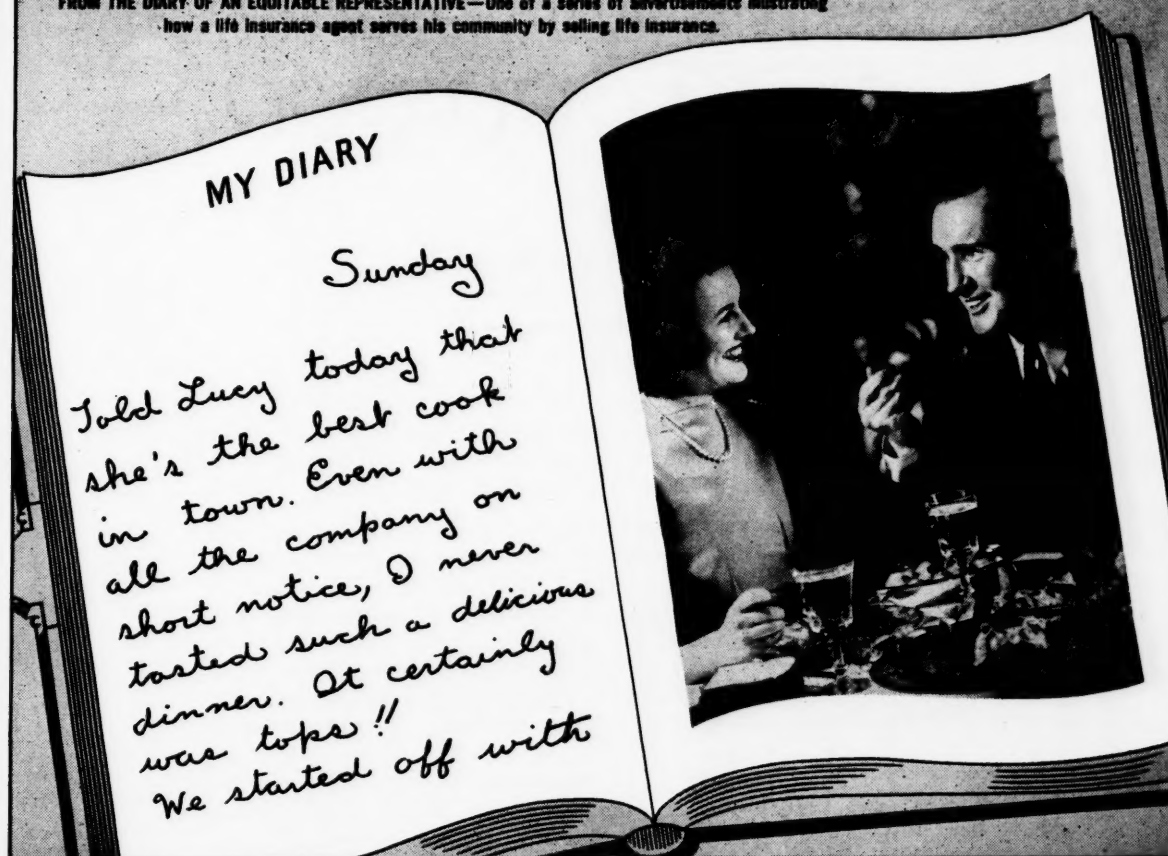 FROM THE DIARY OF AN EQUITABLE REPRESENTATIVE—One of a series of advertisements illustrating
how a life insurance agent serves his community by selling life insurance.
MY DIARY
Sunday
Told Lucy today that
she's the best cook
in town. Even with
all the company on
short notice, I never
tasted such a delicious
dinner. It certainly
was tops!!
We started off with